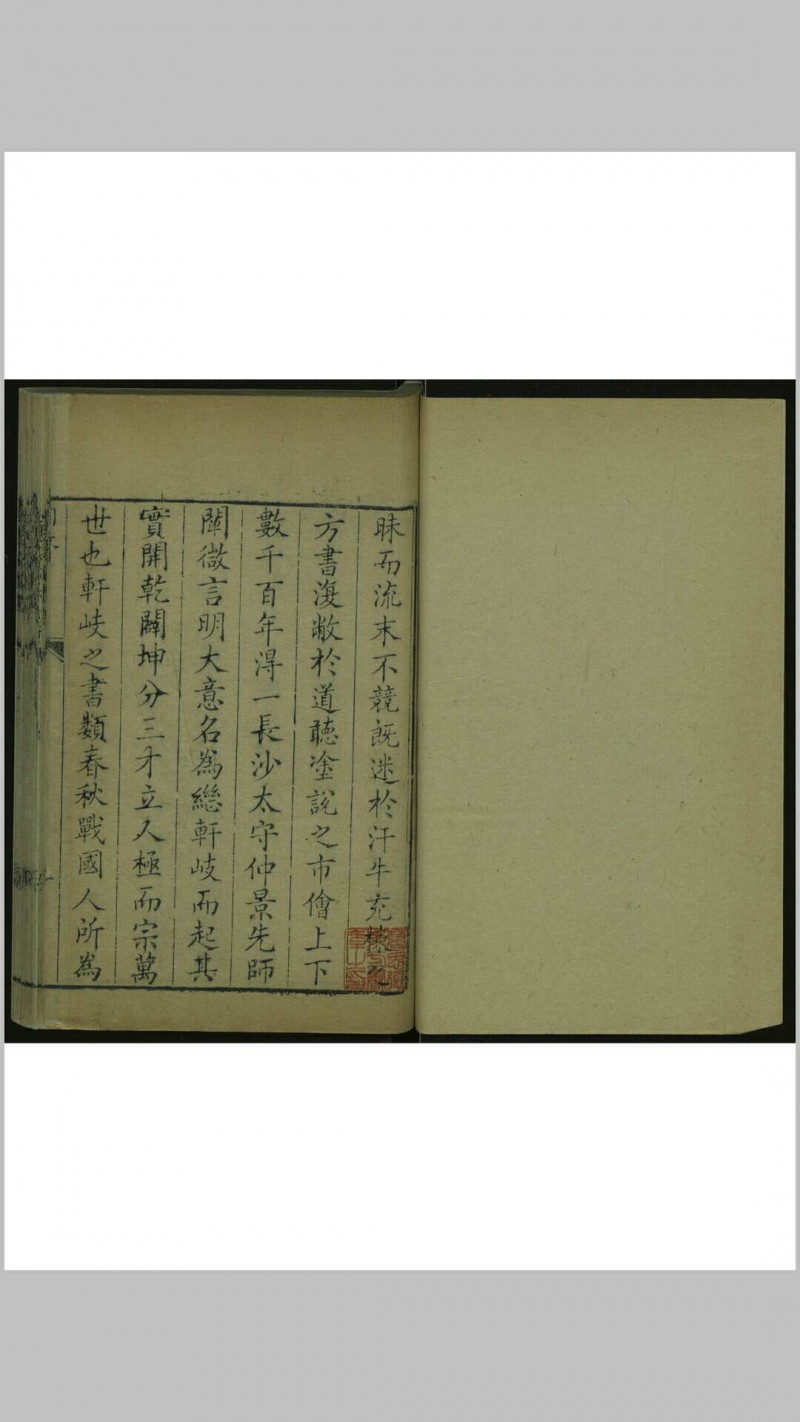 昧而流末不競既迷於汗牛充棟之
方書復敝於道聽塗說之市儈上下
數千百年得一長沙太守仲景先師
闡微言明大意名為繼軒岐而起其
實開乾闢坤分三才立人極而宗萬
世也軒岐之書類春秋戰國人所為